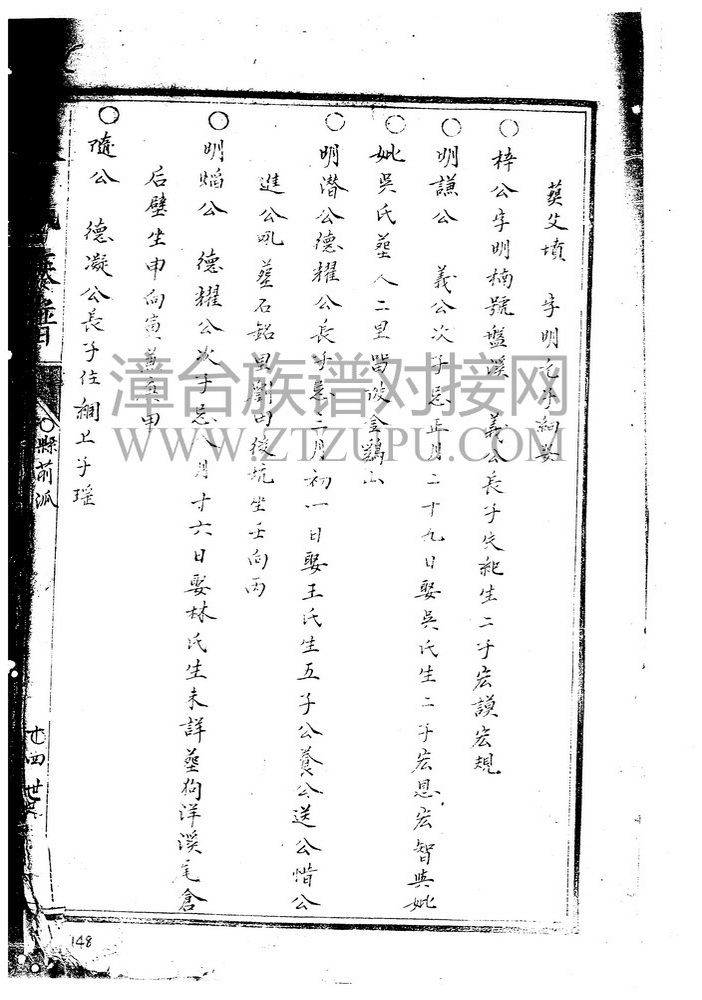 葬父墳 字明
梓公字明楠號盤溪 義公長子失祀生二子宏謨宏規
明謙公 義公次子忌正月二十九日娶吳氏生二子宏恩宏智與妣
妣吳氏葬人二里
明潛公德耀公長子忌二月初一日娶王氏生五子公養公送公惜公
進公吼葬石銘里劉田後坑坐壬向丙
明熖公 德耀公次子忌八月十六日娶林氏生未詳葬狗洋溪尾倉
后壁坐申向寅兼
隨公 德凝公長子住 上子瑤
縣前派
廿四世
148
漳台族谱对接网
WWW.ZTZUPU.COM